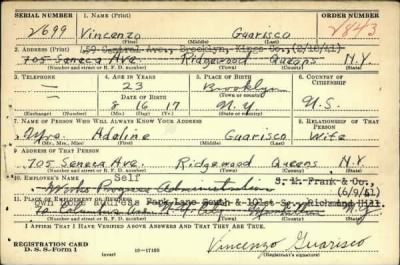 SERIAL NUMBER 1. NAME (Print) ORDER NUMBER
2699 Vincenzo Guarisco 2843
(First) (Middle) (Last)
2. ADDRESS (Print) 159 Central Ave., Brooklyn, Kings Co., (2/18/41)
705 Seneca Ave. Ridgewood Queens N.Y.
(Number and street or R. F. D. number) (Town) (County) (State)
3. TELEPHONE 4. AGE IN YEARS 5. PLACE OF BIRTH 6. COUNTRY OF CITIZENSHIP
— 23 Brooklyn
DATE OF BIRTH (Town or county)
8 16 17 N.Y. U.S.
(Exchange) (Number) (Mo.) (Day) (Yr.) (State or country)
7. NAME OF PERSON WHO WILL ALWAYS KNOW YOUR ADDRESS 8. RELATIONSHIP OF THAT PERSON
Mrs. Adeline Guarisco Wife
(Mr., Mrs., Miss) (First) (Middle) (Last)
9. ADDRESS OF THAT PERSON
705 Seneca Ave. Ridgewood Queens, N.Y.
(Number and street or R. F. D. number) (Town) (County) (State)
10. EMPLOYER'S NAME Self Frank & Co.,
Works Progress Administration (6/9/61)
11. PLACE OF EMPLOYMENT OR BUSINESS Park Lane South & 101st Richmond Hill
own home address
Columbus N.Y. City N.Y.
(Number and street or R. F. D. number) (Town) (County) (State)
I AFFIRM THAT I HAVE VERIFIED ABOVE ANSWERS AND THAT THEY ARE TRUE.
REGISTRATION CARD
D. S. S. Form 1 (over) 16—17105 Vincenzo Guarisco
(Registrant's signature)